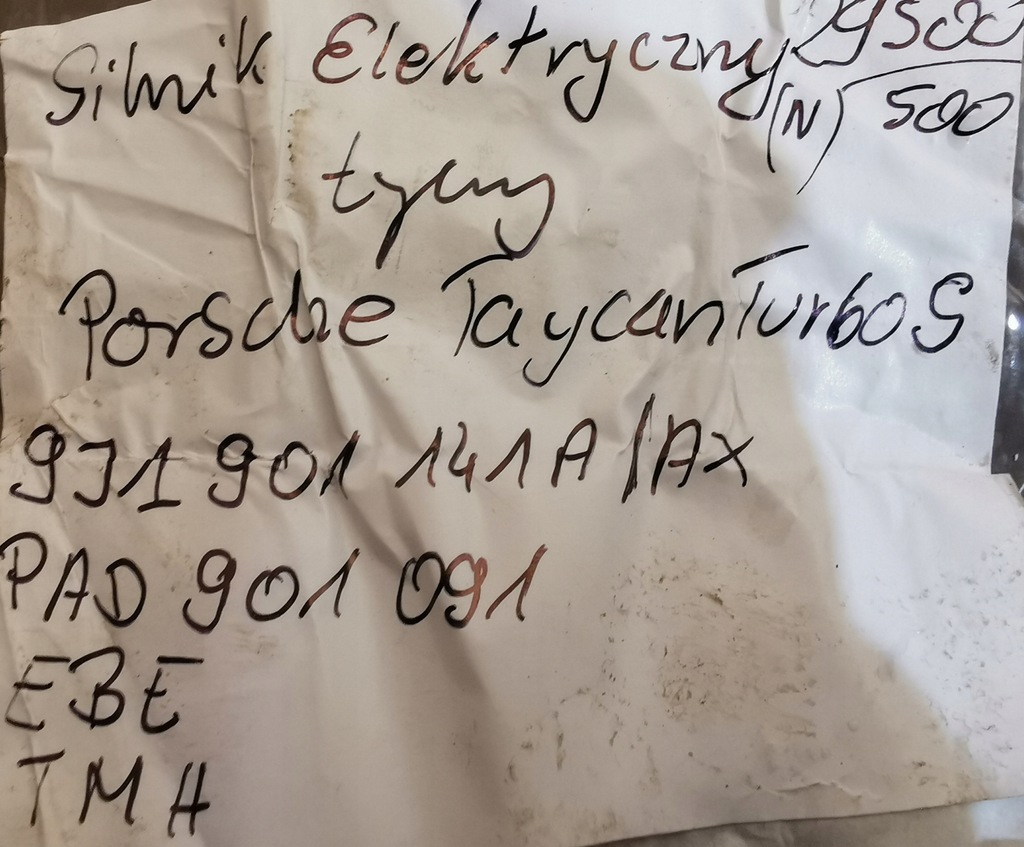 Silnik Elektryczny 29500
(N) 500
tylny
Porsche Taycan Turbo S
9J1 901 141A /AX
PAD 901 091
EBE
TMH